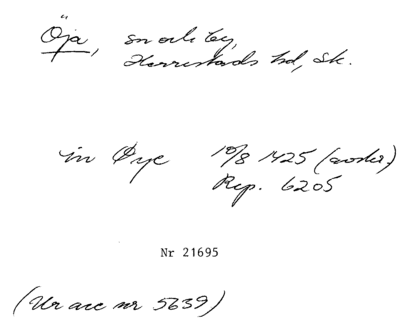 Öja, sn och by,
Herrestads hd, Sk.
in Øye 10/8 1425 (avskr.)
Rep. 6205
Nr 21695
(Ur acc nr 5639)